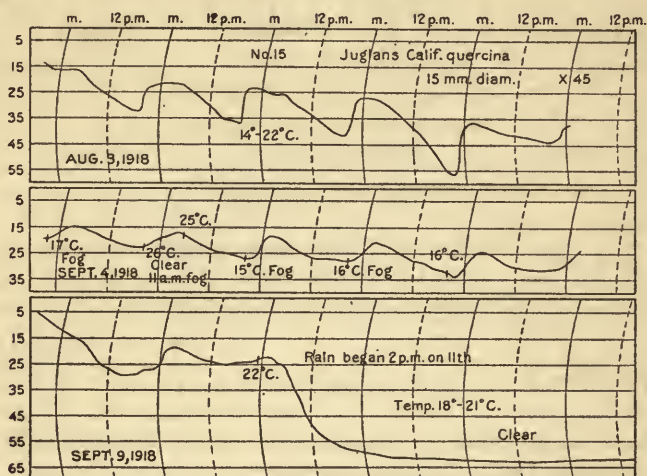 m. 12 p.m. m. 12 p.m. m. 12 p.m. m. 12 p.m. m. 12 p.m. m. 12 p.m.
5
15
25
35
45
55
No.15 Juglans Calif. quercina
15 mm. diam. X 45
14°-22°C.
AUG. 3, 1918
5
15
25
35
17°C.
Fog
SEPT. 4, 1918
26°C.
Clear
11 a.m. fog
25°C.
15°C. Fog
16°C. Fog
16°C.
5
15
25
35
45
55
65
Rain began 2 p.m. on 11th
22°C.
Temp. 18°-21°C.
Clear
SEPT. 9, 1918